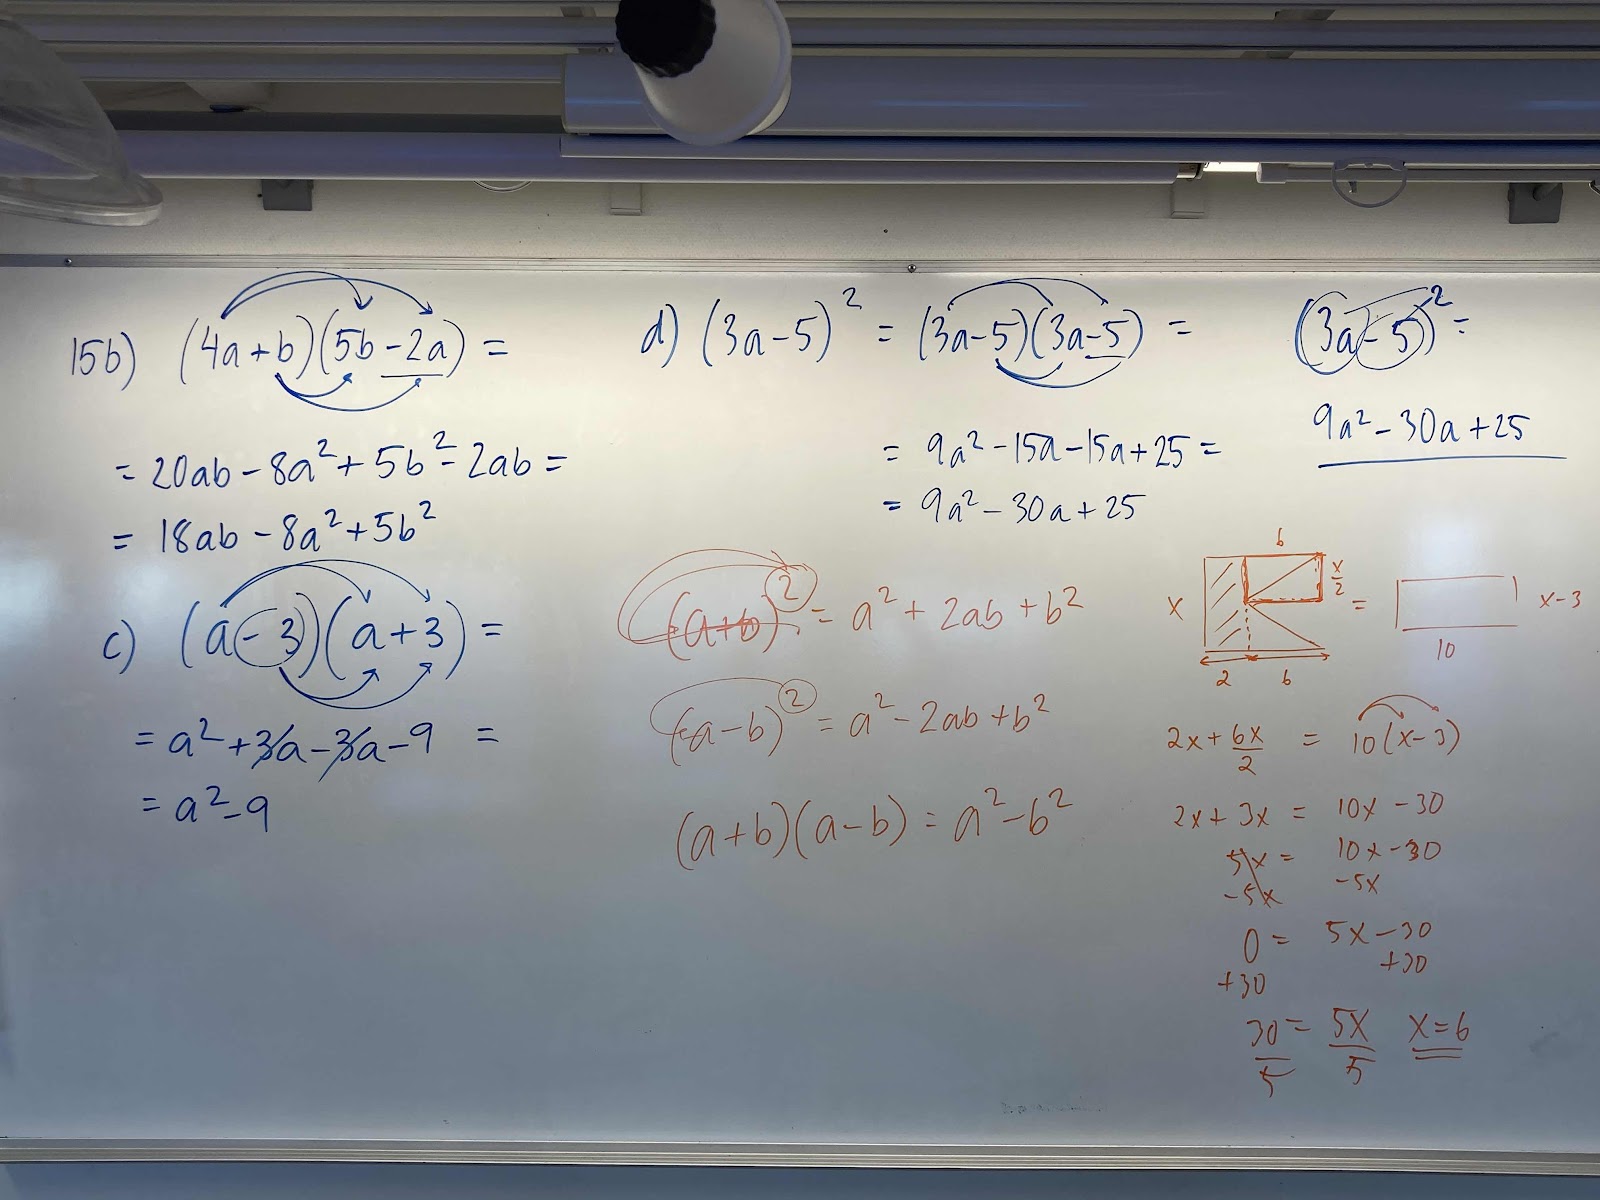 15b) (4a+b)(5b-2a) =
= 20ab - 8a² + 5b² - 2ab =
= 18ab - 8a² + 5b²
c) (a-3)(a+3) =
= a² + 3a - 3a - 9 =
= a² - 9
d) (3a-5)² = (3a-5)(3a-5) =
= 9a² - 15a - 15a + 25 =
= 9a² - 30a + 25
(3a-5)² =
9a² - 30a + 25
(a+b)² = a² + 2ab + b²
(a-b)² = a² - 2ab + b²
(a+b)(a-b) = a² - b²
6
x x/2 = x-3
10
2 6
2x + 6x/2 = 10(x-3)
2x + 3x = 10x - 30
5x = 10x - 30
-5x -5x
0 = 5x - 30
+30 +30
30/5 = 5x/5 x = 6